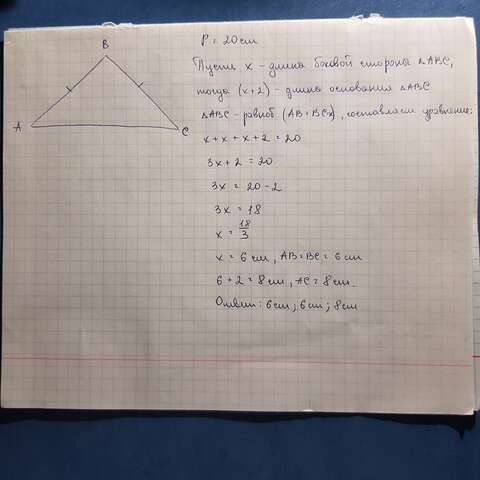 A
B
C
P = 20 см
Пусть x - длина боковой стороны ΔABC,
тогда (x+2) - длина основания ΔABC
ΔABC - равноб (AB=BC), составляем уравнение:
x + x + x + 2 = 20
3x + 2 = 20
3x = 20 - 2
3x = 18
x = 18/3
x = 6 см, AB = BC = 6 см
6 + 2 = 8 см, AC = 8 см.
Ответ: 6 см; 6 см; 8 см